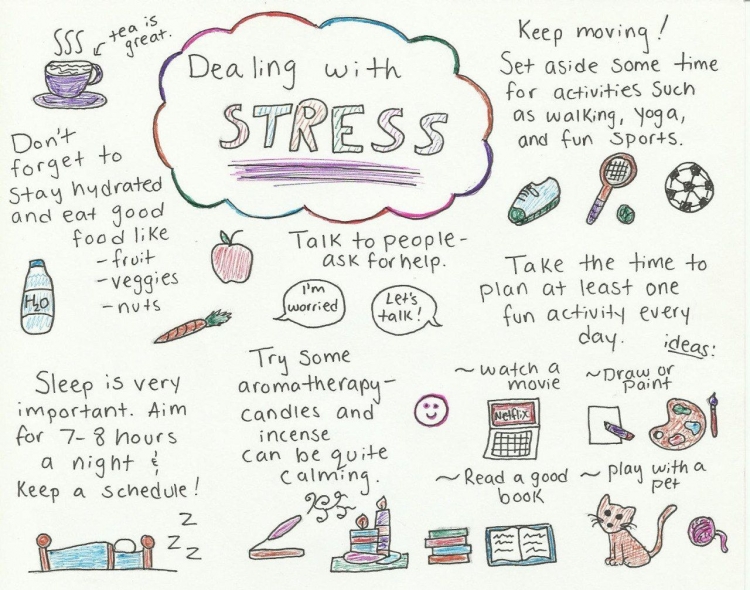 tea is
great.
Dealing with
STRESS
Keep moving!
Set aside some time
for activities such
as walking, yoga,
and fun sports.
Don't
forget to
stay hydrated
and eat good
food like
-fruit
-veggies
-nuts
H2O
Talk to people-
ask for help.
I'm
worried
Let's
talk!
Take the time to
plan at least one
fun activity every
day.
ideas:
~watch a
movie
Netflix
~Draw or
paint
~Read a good
book
~play with a
pet
Try some
aromatherapy-
candles and
incense
can be quite
calming.
Sleep is very
important. Aim
for 7-8 hours
a night &
keep a schedule!
z
z
z